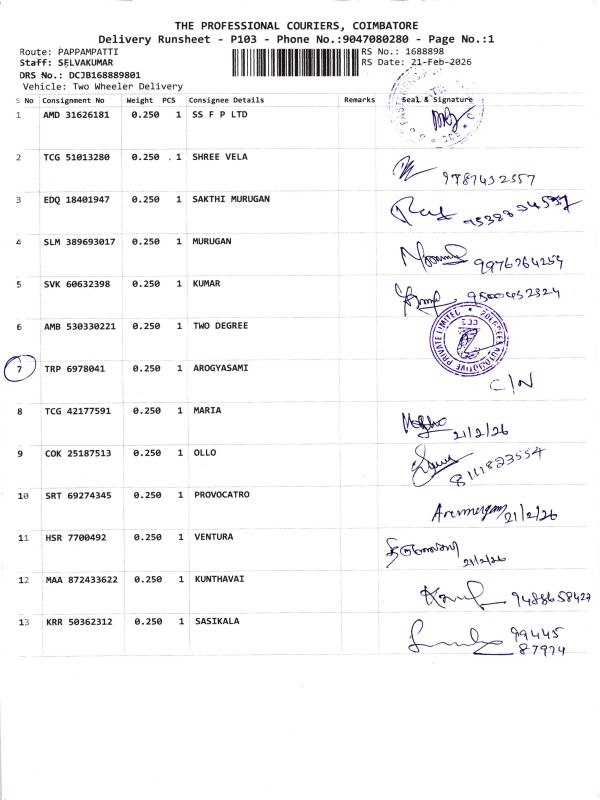 THE PROFESSIONAL COURIERS, COIMBATORE
Delivery Runsheet - P103 - Phone No.:9047080280 - Page No.:1
Route: PAPPAMPATTI RS No.: 1688898
Staff: SELVAKUMAR RS Date: 21-Feb-2026
DRS No.: DCJB168889801
Vehicle: Two Wheeler Delivery
S No Consignment No Weight PCS Consignee Details Remarks Seal & Signature
1 AMD 31626181 0.250 1 SS F P LTD
2 TCG 51013280 0.250 1 SHREE VELA 9787432557
3 EDQ 18401947 0.250 1 SAKTHI MURUGAN
4 SLM 389693017 0.250 1 MURUGAN 9976764254
5 SVK 60632398 0.250 1 KUMAR 9500452324
6 AMB 530330221 0.250 1 TWO DEGREE PRIVATE LIMITED
7 TRP 6978041 0.250 1 AROGYASAMI C/N
8 TCG 42177591 0.250 1 MARIA 21/2/26
9 COK 25187513 0.250 1 OLLO 8111823554
10 SRT 69274345 0.250 1 PROVOCATRO 21/2/26
11 HSR 7700492 0.250 1 VENTURA 21/2/26
12 MAA 872433622 0.250 1 KUNTHAVAI 9488658427
13 KRR 50362312 0.250 1 SASIKALA 99445
87974